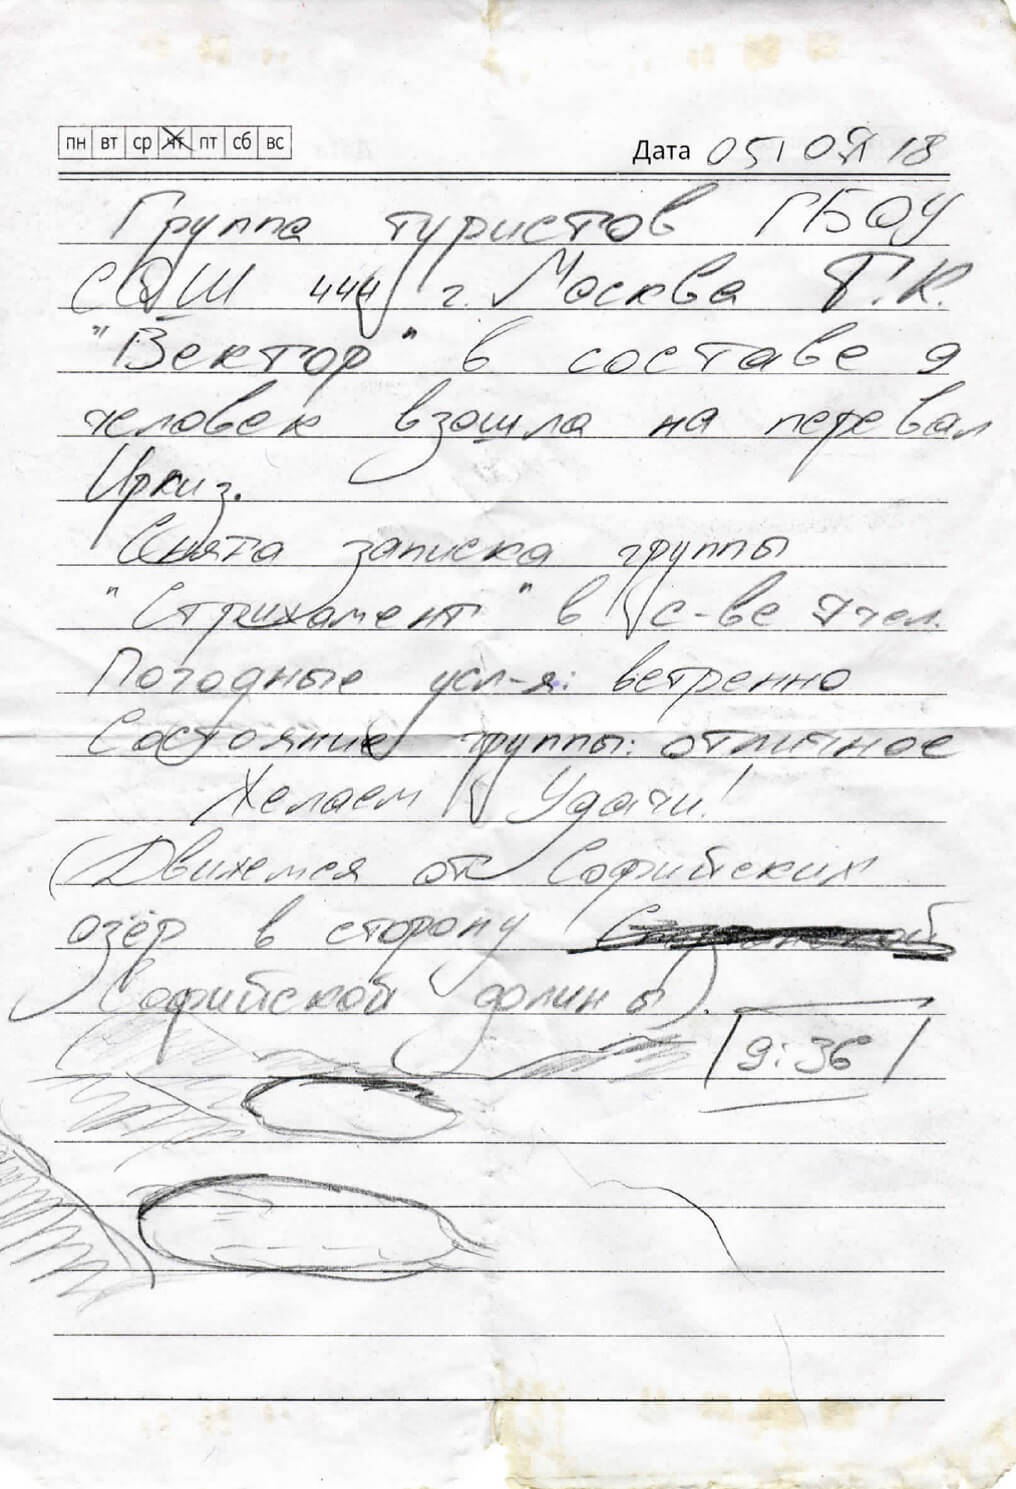 пн вт ср чт пт сб вс Дата 05.07.18
Группа туристов ГБОУ
СОШ 444 г. Москва Т.К.
"Вектор" в составе 9
человек взошла на перевал
Иркиз.
Снята записка группы
"Стрижамент" в с-ве 7 чел.
Погодные усл-я: ветренно
Состояние группы: отличное
Желаем Удачи!
(Движемся от Софийских
озёр в сторону
Софийской долины).
9:36